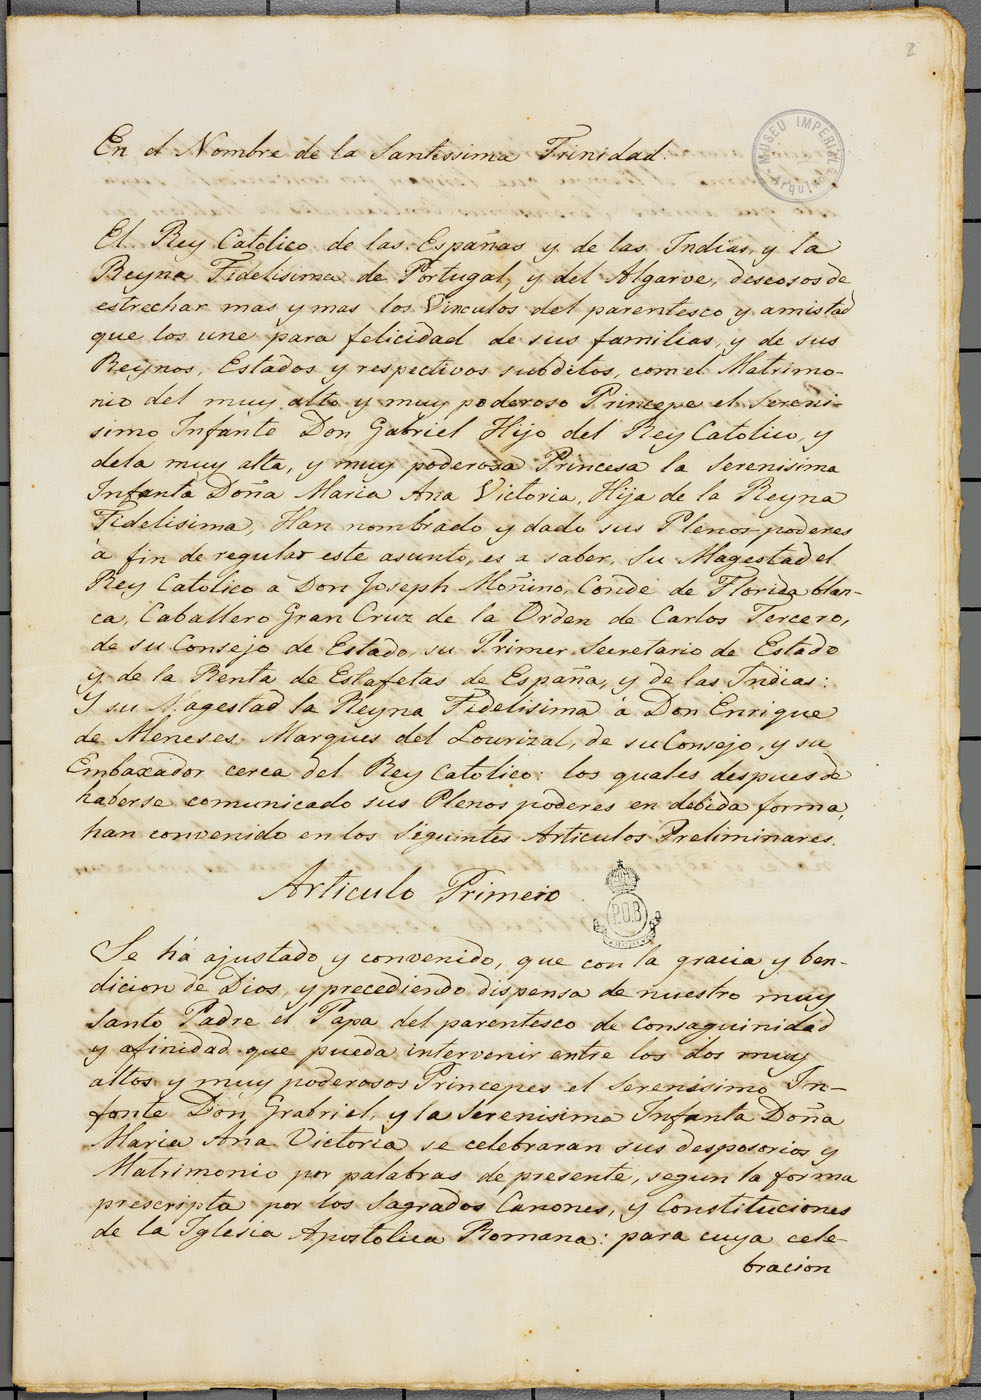 2
MUSEU IMPERIAL
Arquivo
En el Nombre de la Santissima Trinidad.
El Rey Catolico de las Españas y de las Indias, y la
Reyna Fidelisima de Portugal, y del Algarve, deseosos de
estrechar mas y mas los Vinculos del parentesco y amistad
que los une para felicidad de sus familias, y de sus
Reynos, Estados y respectivos subditos, com el Matrimo-
nio del muy alto y muy poderoso Princepe el Sereni-
simo Infante Don Gabriel Hijo del Rey Catolico, y
dela muy alta, y muy poderosa Princesa la Serenisima
Infanta Doña Maria Ana Victoria, Hija de la Reyna
Fidelisima, Han nombrado y dado sus Plenos poderes
à fin de regular este asunto, es a saber, Su Magestad el
Rey Catolico à Don Joseph Moñino, Conde de Florida blan-
ca, Caballero Gran Cruz de la Orden de Carlos Tercero,
de su Consejo de Estado, su Primer Secretario de Estado
y de la Renta de Estafetas de España, y de las Indias:
Y su Magestad la Reyna Fidelisima à Don Enrique
de Meneses Marques del Lourizal, de su Consejo, y su
Embaxador cerca del Rey Catolico: los quales despues de
haberse comunicado sus Plenos poderes en debida forma,
han convenido en los Siguintes Articulos Preliminares.
Articulo Primero
P.O.B
Se há ajustado y convenido, que con la gracia y ben-
dicion de Dios, y precediendo dispensa de nuestro muy
Santo Padre el Papa del parentesco de consaguinidad
y afinidad que pueda intervenir entre los dos muy
altos y muy poderosos Princepes el Serenissimo In-
fante Don Grabriel, y la Serenisima Infanta Doña
Maria Ana Victoria se celebraran sus desposorios y
Matrimonio por palabras de presente, segun la forma
prescripta por los Sagrados Canones, y Constituciones
de la Iglesia Apostolica Romana: para cuya cele-
bracion